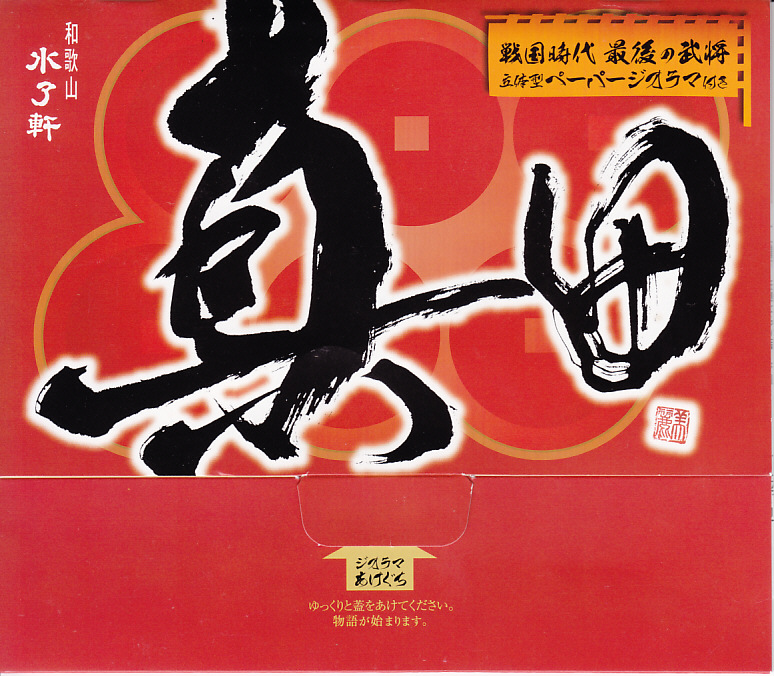 和歌山
水了軒
戦国時代 最後の武将
立体型ペーパージオラマ付き
真田
ジオラマ
あけぐち
ゆっくりと蓋をあけてください。
物語が始まります。